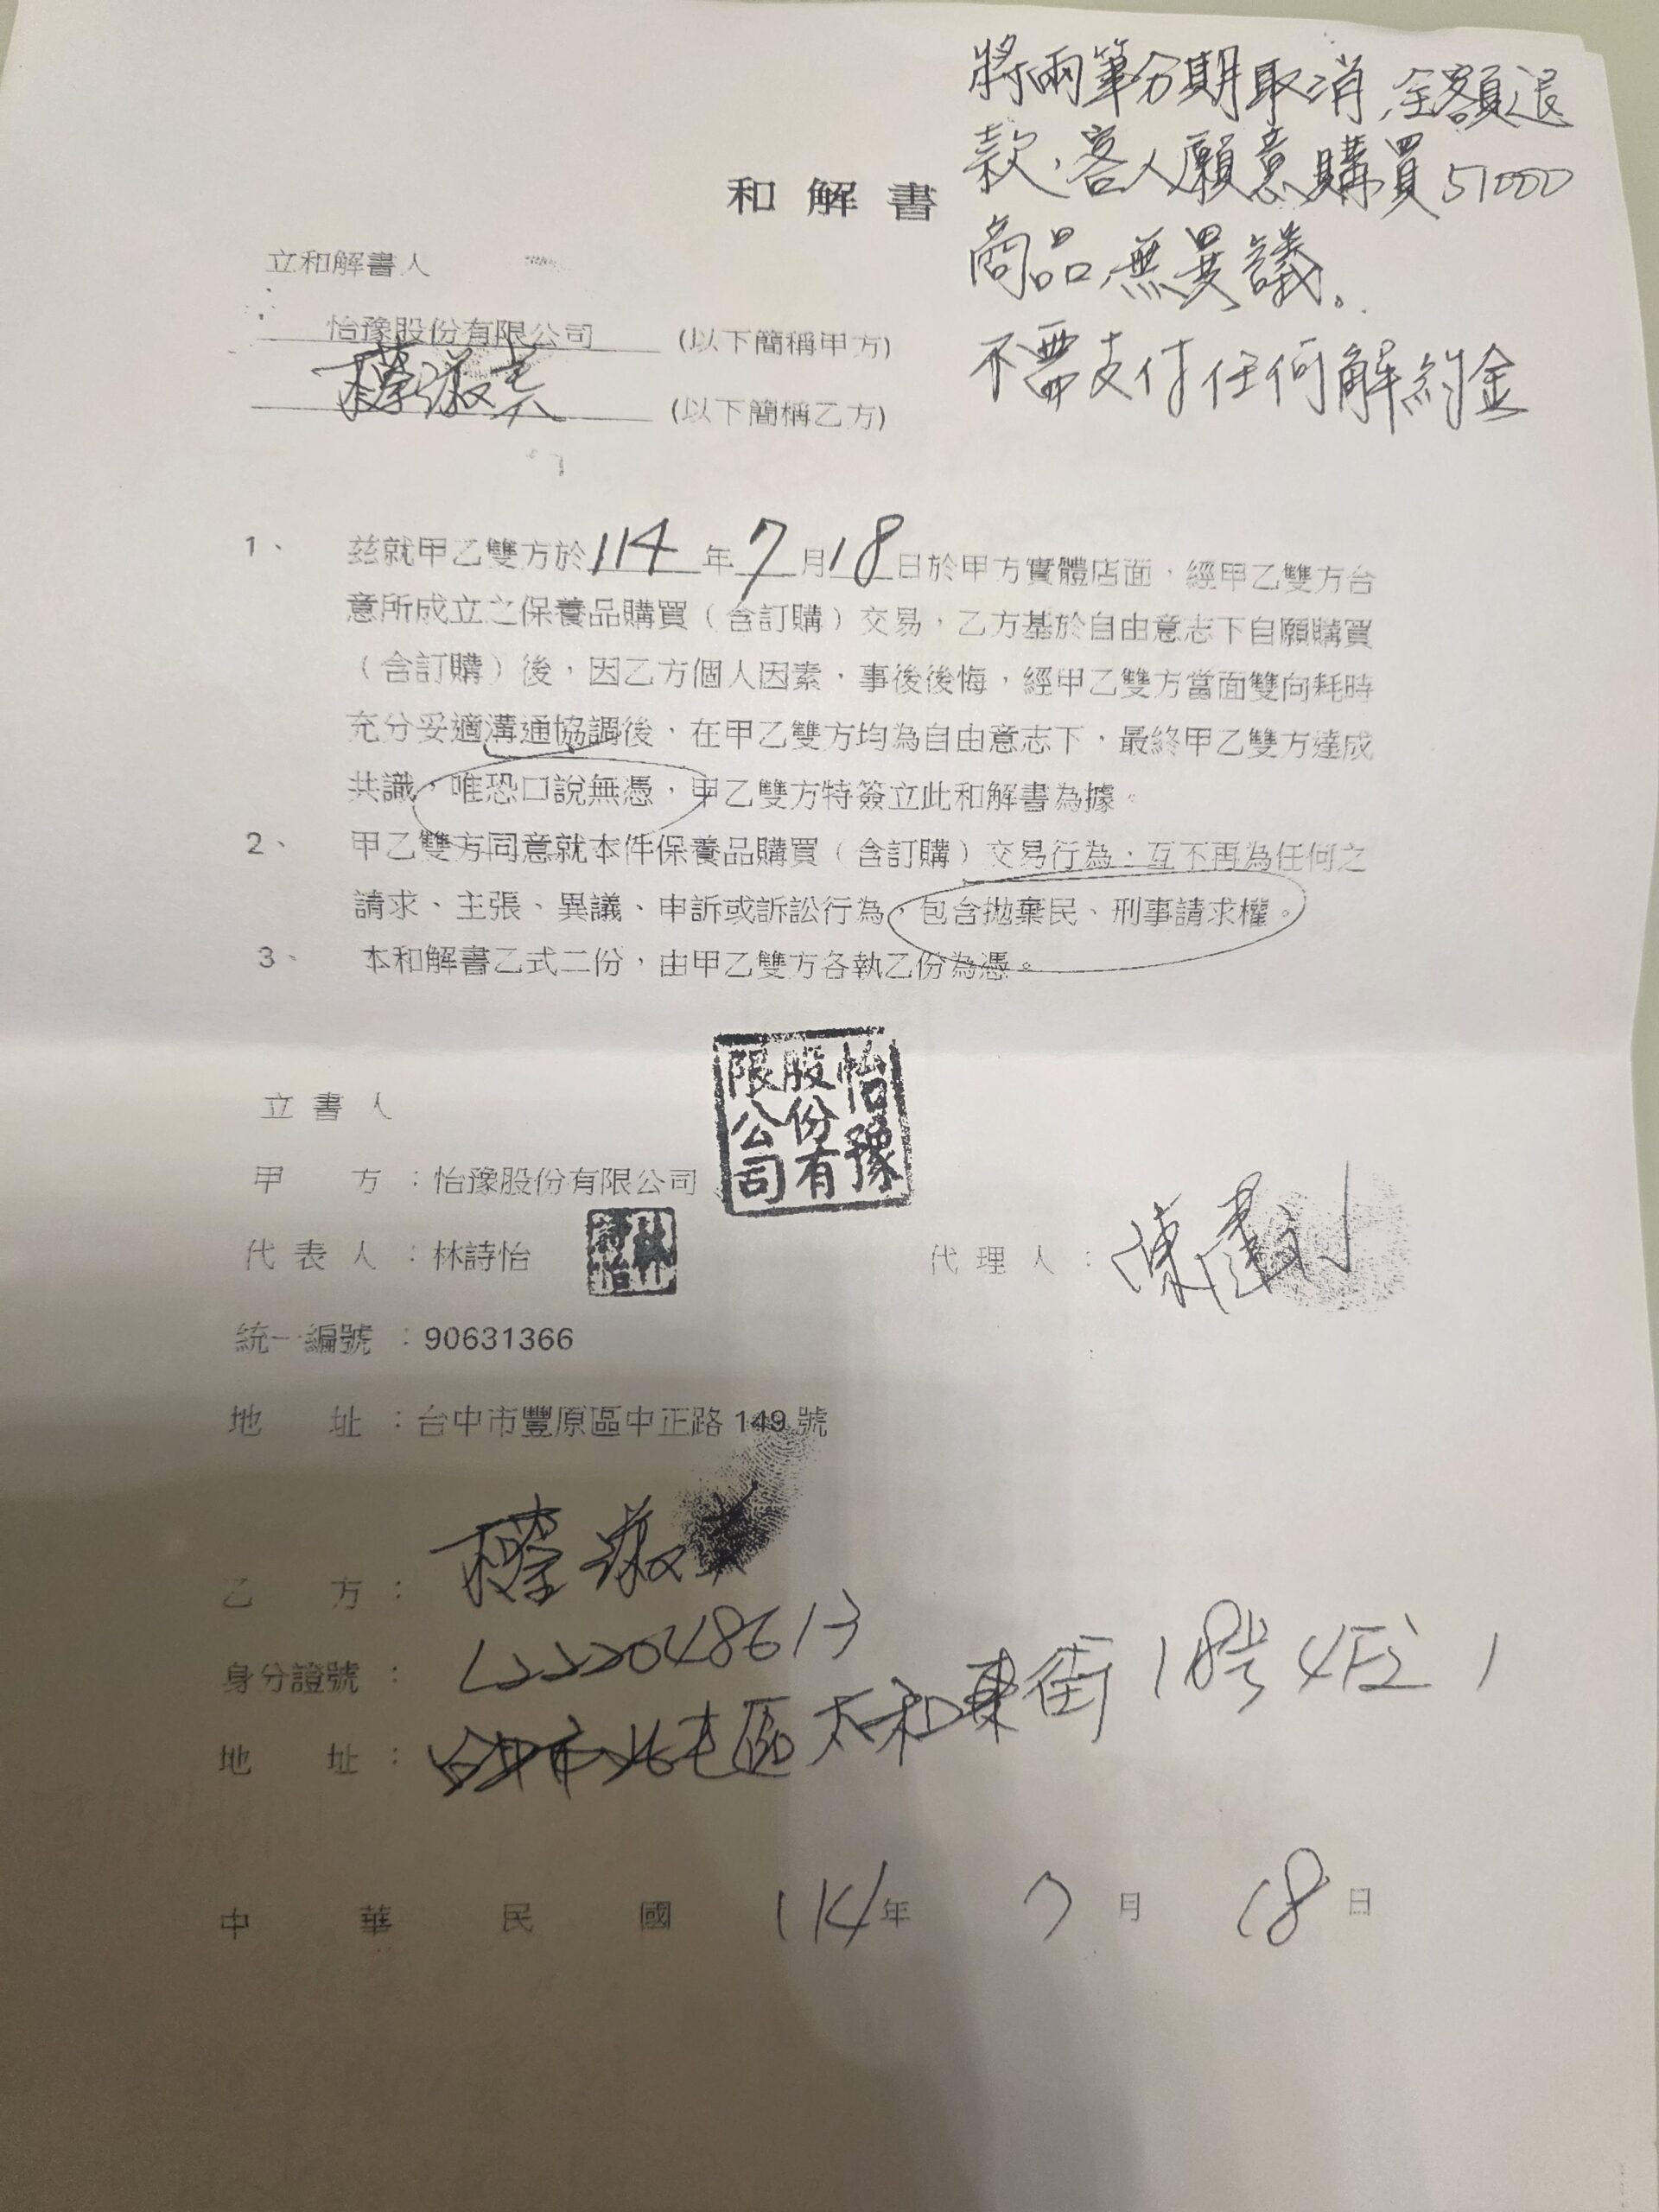 將兩筆分期取消,全額退
款,客人願意購買51000
商品,無異議。
不需支付任何解約金
和解書
立和解書人
怡豫股份有限公司 (以下簡稱甲方)
淑 (以下簡稱乙方)
1、 茲就甲乙雙方於114年7月18日於甲方實體店面,經甲乙雙方合
意所成立之保養品購買(含訂購)交易,乙方基於自由意志下自願購買
(含訂購)後,因乙方個人因素,事後後悔,經甲乙雙方當面雙向耗時
充分妥適溝通協調後,在甲乙雙方均為自由意志下,最終甲乙雙方達成
共識,唯恐口說無憑,甲乙雙方特簽立此和解書為據。
2、 甲乙雙方同意就本件保養品購買(含訂購)交易行為,互不再為任何之
請求、主張、異議、申訴或訴訟行為,包含拋棄民、刑事請求權。
3、 本和解書乙式二份,由甲乙雙方各執乙份為憑。
怡豫股份有限公司
立書人
甲方:怡豫股份有限公司
代表人:林詩怡 林詩怡 代理人:陳
統一編號:90631366
地址:台中市豐原區中正路149號
乙方:淑
身分證號:L222048613
地址:台中市北屯區太和東街18號4F之1
中華民國114年7月18日